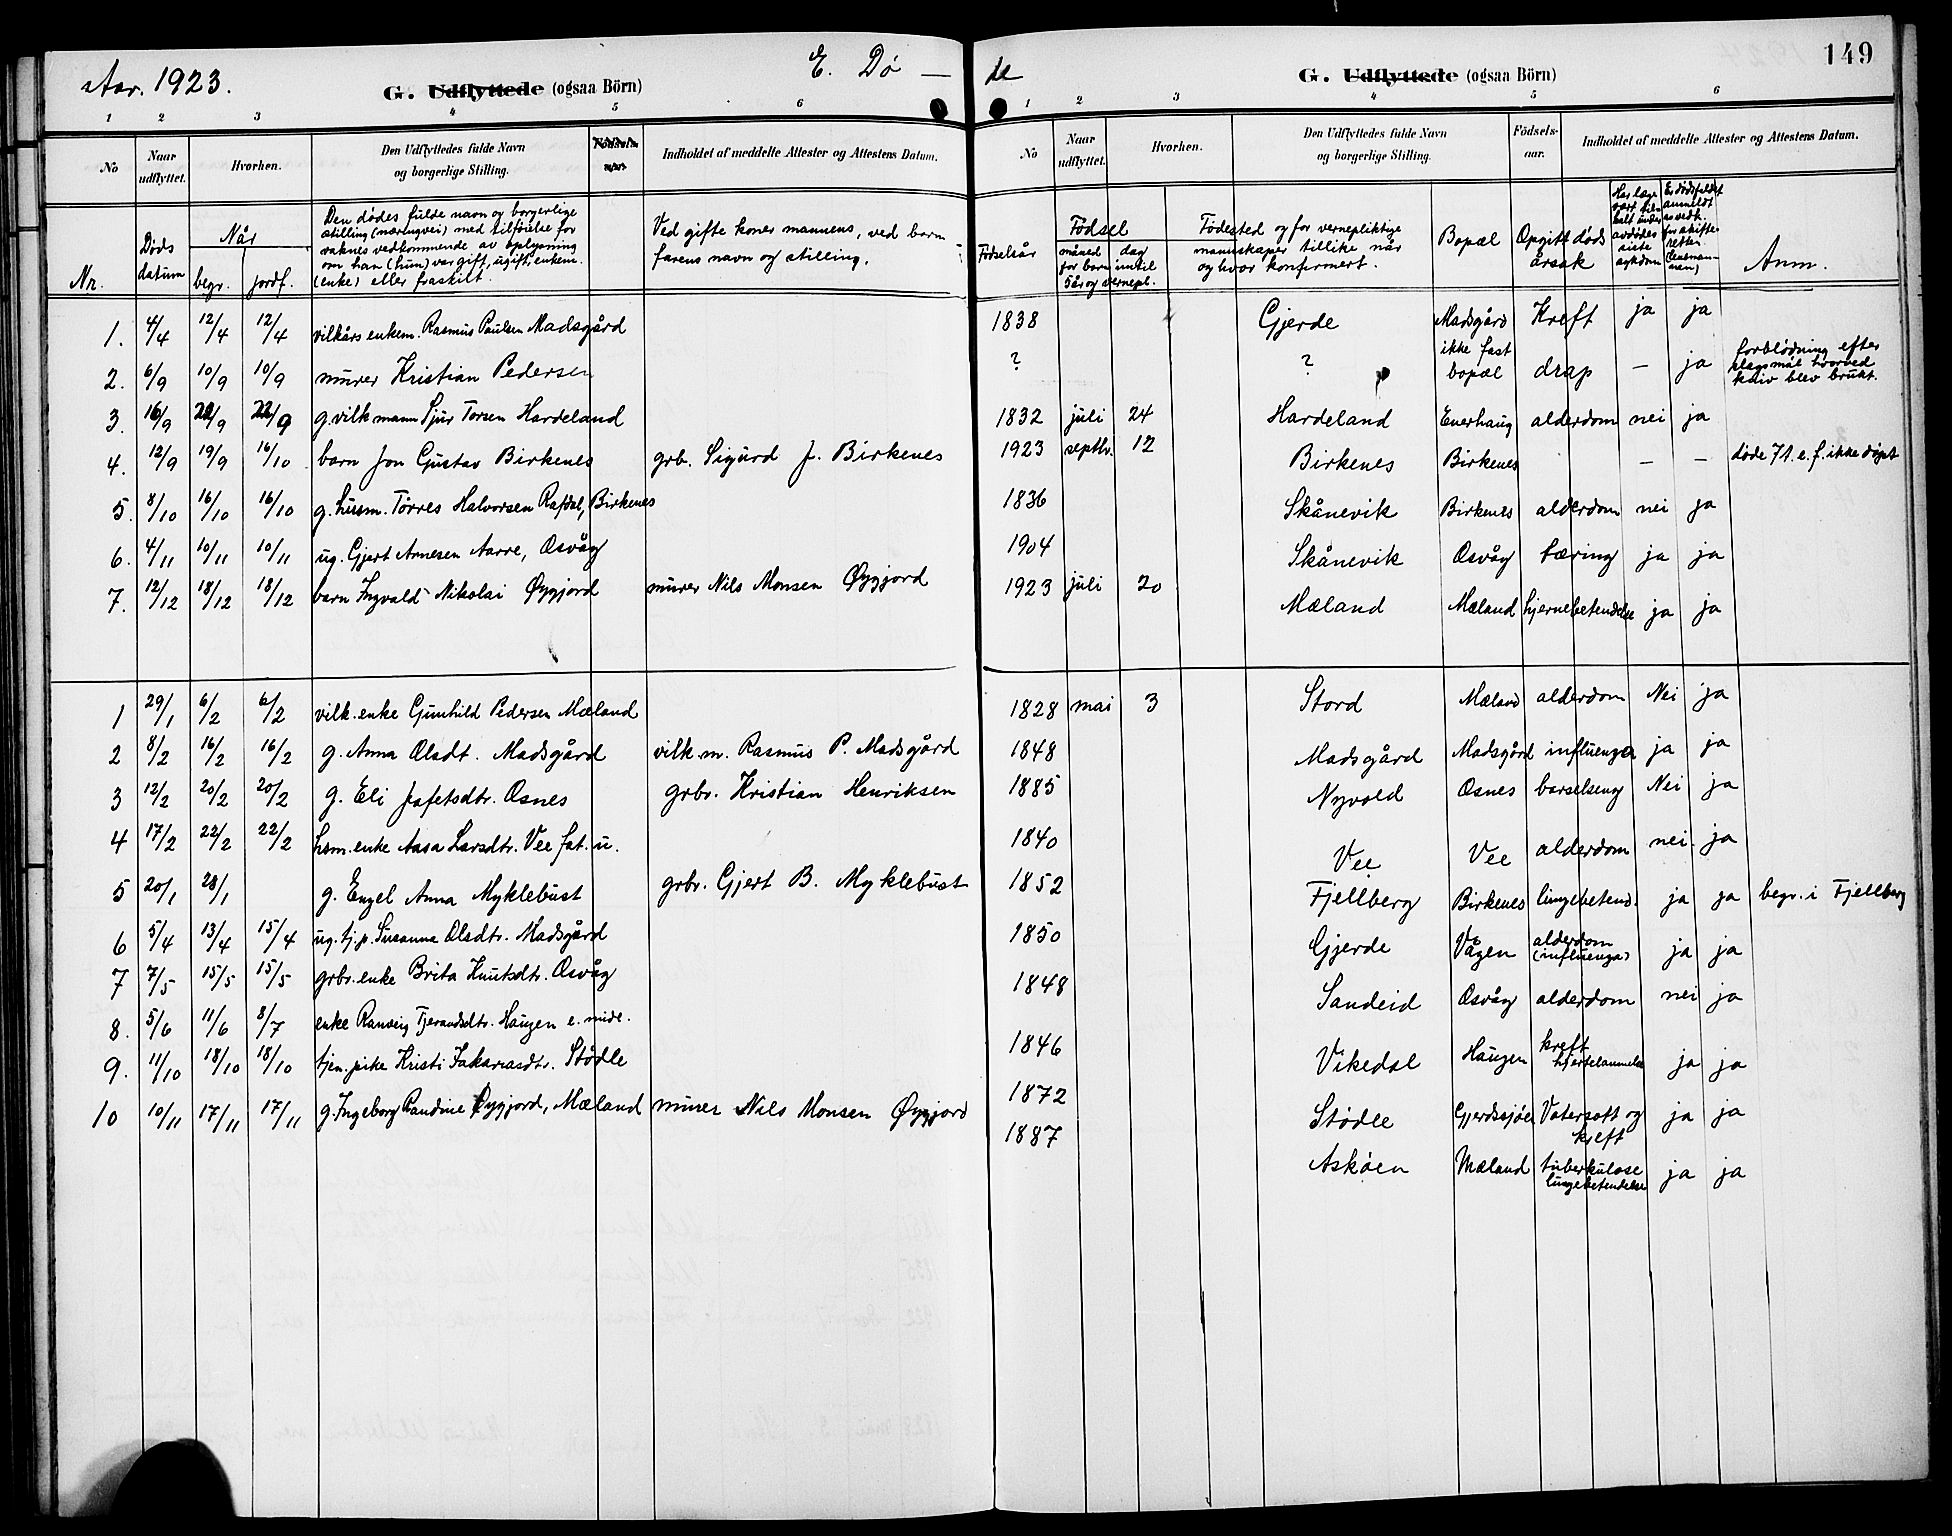 Aar. 1923.
E. Dø — de
149
G. Udflyttede (ogsaa Börn)
G. Udflyttede (ogsaa Börn)
1 2 3 4 5 6
1 2 3 4 5 6
No Naar udflyttet. Hvorhen. Den Udflyttedes fulde Navn og borgerlige Stilling. Fødsels-aar. Indholdet af meddelte Attester og Attestens Datum.
No Naar udflyttet. Hvorhen. Den Udflyttedes fulde Navn og borgerlige Stilling. Födsels-aar. Indholdet af meddelte Attester og Attestens Datum.
Nr. Døds datum Når begr. jordf.
Den dødes fulde navn og borgerlige
stilling (næringsvei) med tilføielse for
voksnes vedkommende av oplysning
om han (hun) var gift, ugift, enkem.
(enke) eller fraskilt.
Ved gifte koner mannens, ved barn
farens navn og stilling.
Fødselsår Fødsel måned dag for barn inntil 5 år og vernepl.
Fødested og for vernepliktige
mannskaper tillike når
og hvor konfirmert.
Bopæl Opgitt dødsårsak
Har læge vært tilkalt under avdødes siste sykdom
Er dødsfaldet anmeldt for skifteretten (lensmannen)
Anm.
1. 4/4 12/4 12/4 vilkårs enkem. Rasmus Paulsen Madsgård 1838 Gjerde Madsgård Kreft ja ja
2. 6/9 10/9 10/9 murer Kristian Pedersen ? ? ikke fast bopæl drap — ja forblødning efter slagsmål hvorved kniv blev brukt.
3. 16/9 22/9 22/9 g. vilk mann Sjur Torsen Hardeland 1832 juli 24 Hardeland Enerhaug alderdom nei ja
4. 12/9 19/9 16/10 barn Jon Gustav Birkenes grb. Sigurd J. Birkenes 1923 septbr. 12 Birkenes Birkenes — — døde 7 t. e. f. ikke døpt
5. 8/10 16/10 16/10 g. husm. Tørres Halvorsen Rafdal, Birkenes 1836 Skånevik Birkenes alderdom nei ja
6. 4/11 10/11 10/11 ug. Gjert Arnesen Aarre, Osvåg 1904 Skånevik Osvåg tæring ja ja
7. 12/12 18/12 18/12 barn Ingvald Nikolai Øygjord murer Nils Monsen Øygjord 1923 juli 20 Mæland Mæland hjernebetendelse ja ja
1 29/1 6/2 6/2 vilk. enke Gunhild Pedersen Mæland 1828 mai 3 Stord Mæland alderdom Nei ja
2 8/2 16/2 16/2 g. Anna Olsdt. Madsgård vilk m. Rasmus P. Madsgård 1848 Madsgård Madsgård influenza ja ja
3 12/2 20/2 20/2 g. Eli Jafetsdtr. Osnes grbr. Kristian Henriksen 1885 Nyvold Osnes barselseng Nei ja
4 17/2 22/2 22/2 hsm. enke Aasa Larsdtr. Vee fat. u. 1840 Vee Vee alderdom nei ja
5 20/1 28/1 g. Engel Anna Myklebust grbr. Gjert B. Myklebust 1852 Fjellberg Birkenes lungebetend. ja ja begr. i Fjellberg
6 5/4 13/4 15/4 ug. tj.p. Susanna Olsdtr. Madsgård 1850 Gjerde Vågen alderdom (influenza) ja ja
7 7/5 15/5 15/5 grbr. enke Brita Knutsdtr. Osvåg 1848 Sandeid Osvåg alderdom nei ja
8. 5/6 11/6 8/7 enke Ranveig Tjerandsdtr. Haugen e. mide. 1846 Vikedal Haugen kreft hjertelammelse ja ja
9. 11/10 18/10 18/10 tjen. pike Kristi Sakariasdtr. Stødle 1872 Stødle Gjerdssjøen Vatersott og kreft ja ja
10 10/11 17/11 17/11 g. Ingeborg Randine Øygjord, Mæland murer Nils Monsen Øygjord 1887 Askøen Mæland tuberkuløse lungebetendelse ja ja